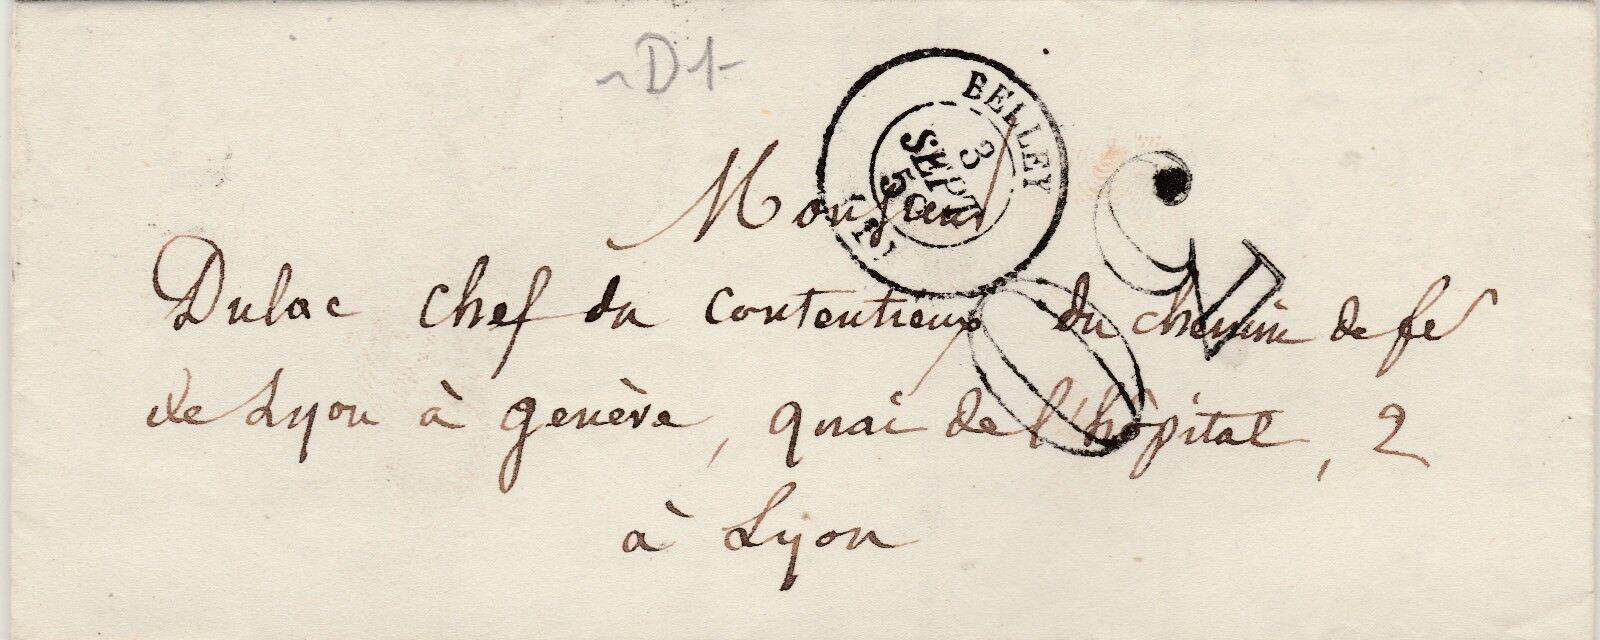 ~D1-
BELLEY
3
SEPT
Monsieur
50
Dulac chef du contentieux du chemin de fer
de Lyon à genève, quai de l'hôpital, 2
à Lyon